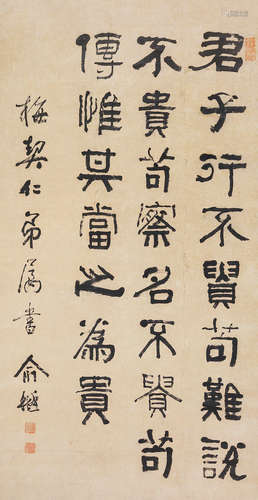 君子行不貴苟難說
不貴苟察名不貴苟
傳惟其當之為貴
梅契仁弟屬書 俞樾